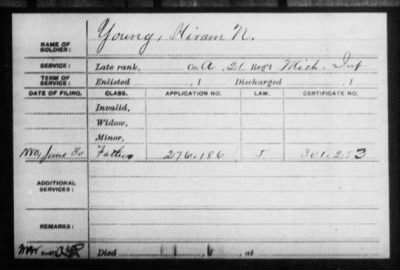 NAME OF SOLDIER: Young, Hiram N.
SERVICE: Late rank, Co. A, 21 Reg't Mich. Inf
TERM OF SERVICE: Enlisted , 1 Discharged , 1
DATE OF FILING. CLASS. APPLICATION NO. LAW. CERTIFICATE NO.
Invalid,
Widow,
Minor,
1880, June 30 Father 276.186 301.253
ADDITIONAL SERVICES:
REMARKS:
Died , 1 , at